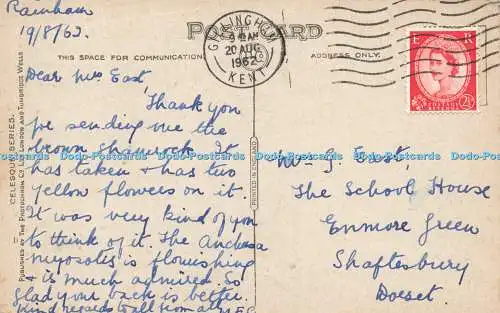 Rainham
19/8/62.
POST CARD
THIS SPACE FOR COMMUNICATION
ADDRESS ONLY.
GILLINGHAM
20 AUG
1962
KENT
E R
2½
Dear Mrs East,
Thank you
for sending me the
brown Shamrock. It
has taken & has two
yellow flowers on it.
It was very kind of you
to think of it. The Anchusa
myosotis is flourishing
& is much admired. So
glad your back is better.
Kind regards to all from all
Mrs G. East,
The School House
Enmore Green
Shaftesbury
Dorset.
"CELESQUE" SERIES.
PUBLISHED BY THE PHOTOCHROM CO. LTD. LONDON AND TUNBRIDGE WELLS
PRINTED IN ENGLAND
Dodo-Postcards Dodo-Postcards Dodo-Postcards Dodo-Postcards Dodo-Postcards Dodo-Postcards